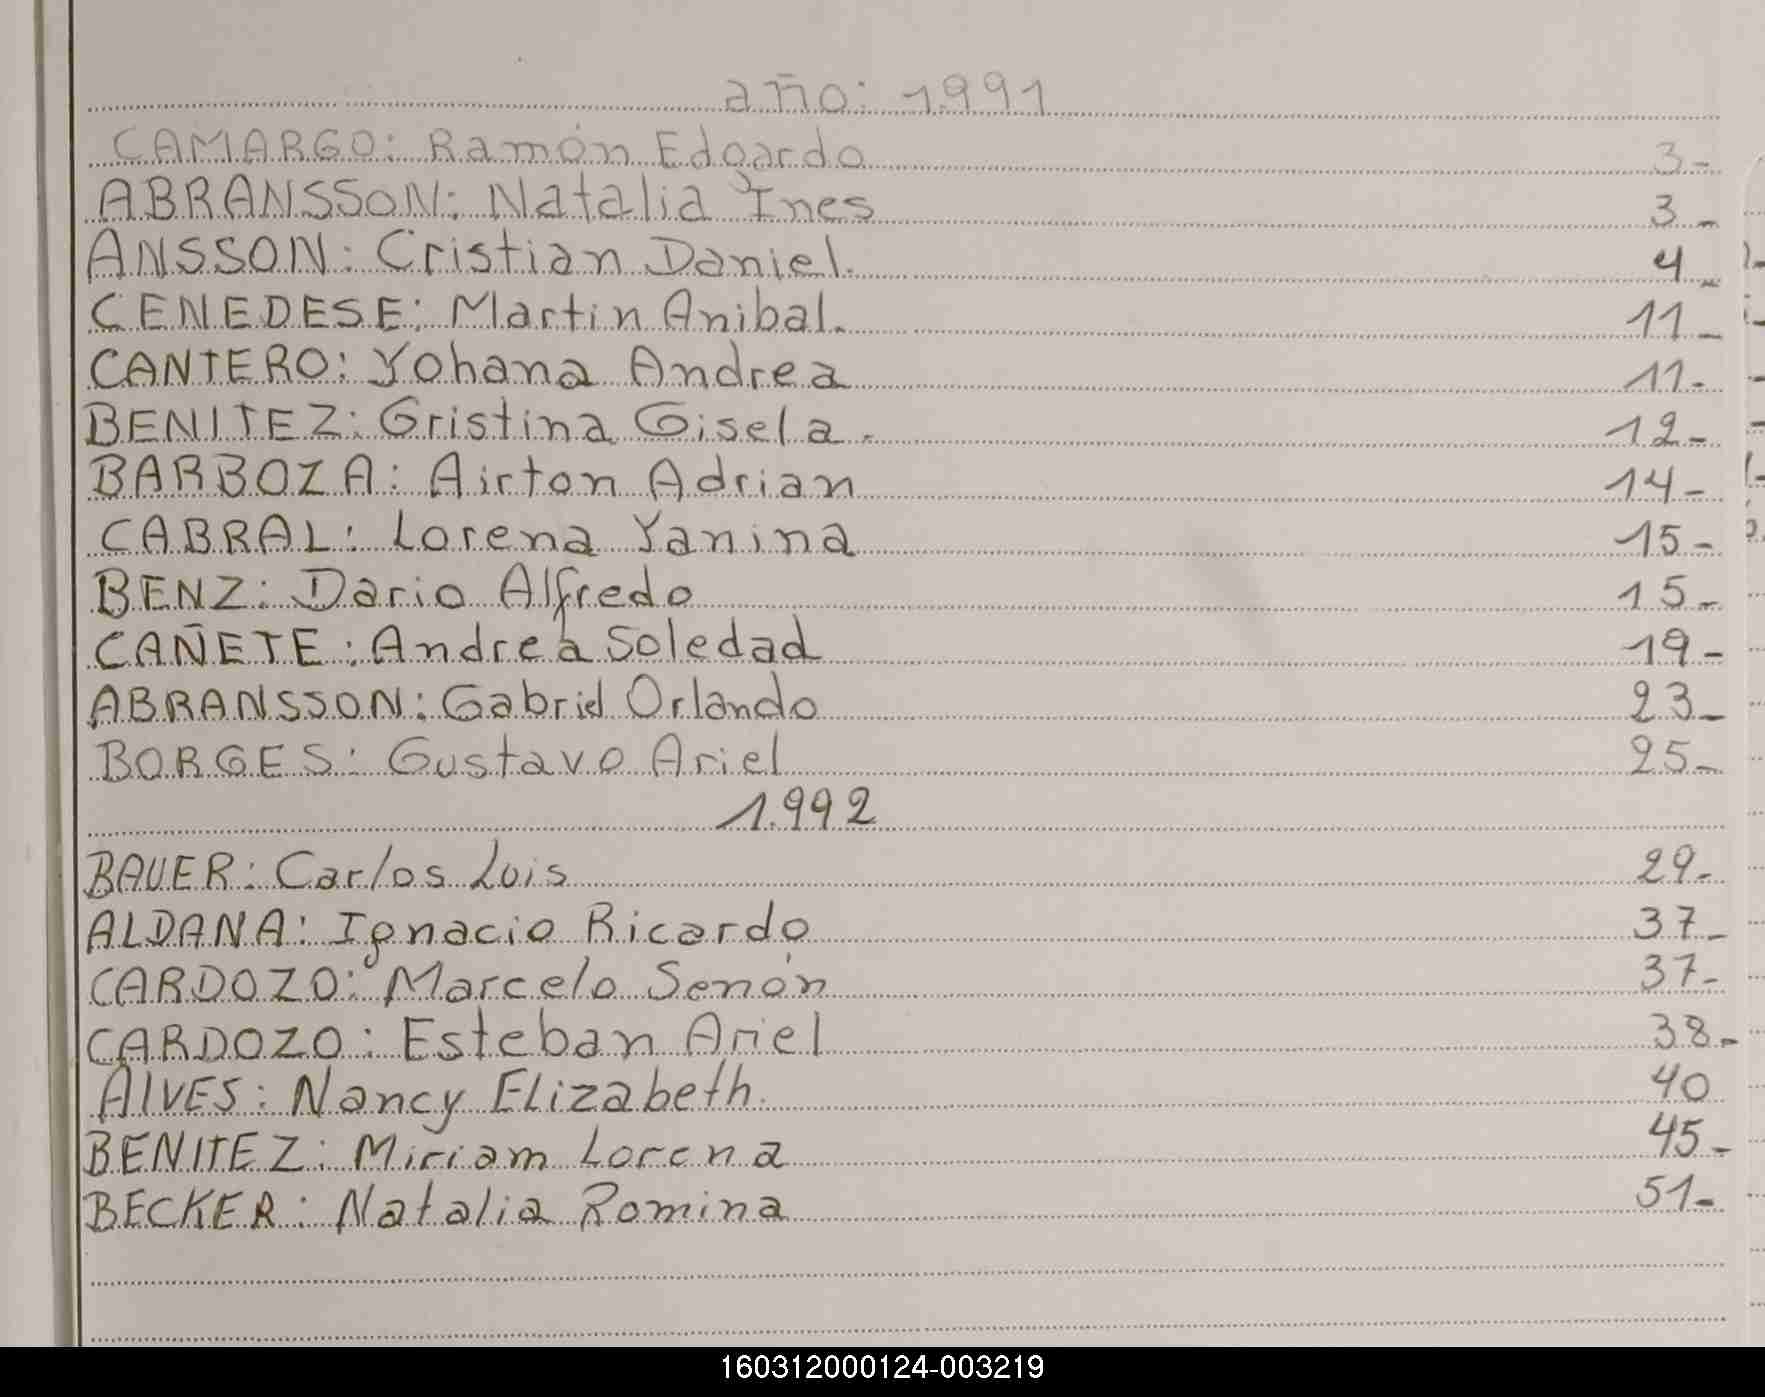 año: 1.991
CAMARGO: Ramón Edoardo 3-
ABRANSSON: Natalia Ines 3-
ANSSON: Cristian Daniel. 4-
CENEDESE: Martin Anibal. 11-
CANTERO: Yohana Andrea 11-
BENITEZ: Gristina Gisela. 12-
BARBOZA: Airton Adrian 14-
CABRAL: Lorena Yanina 15-
BENZ: Dario Alfredo 15-
CAÑETE: Andrea Soledad 19-
ABRANSSON: Gabriel Orlando 23-
BORGES: Gustavo Ariel 25-
1.992
BAUER: Carlos Luis 29-
ALDANA: Ignacio Ricardo 37-
CARDOZO: Marcelo Senón 37-
CARDOZO: Esteban Ariel 38-
AlVES: Nancy Elizabeth. 40
BENITEZ: Miriam Lorena 45-
BECKER: Natalia Romina 51-
160312000124-003219